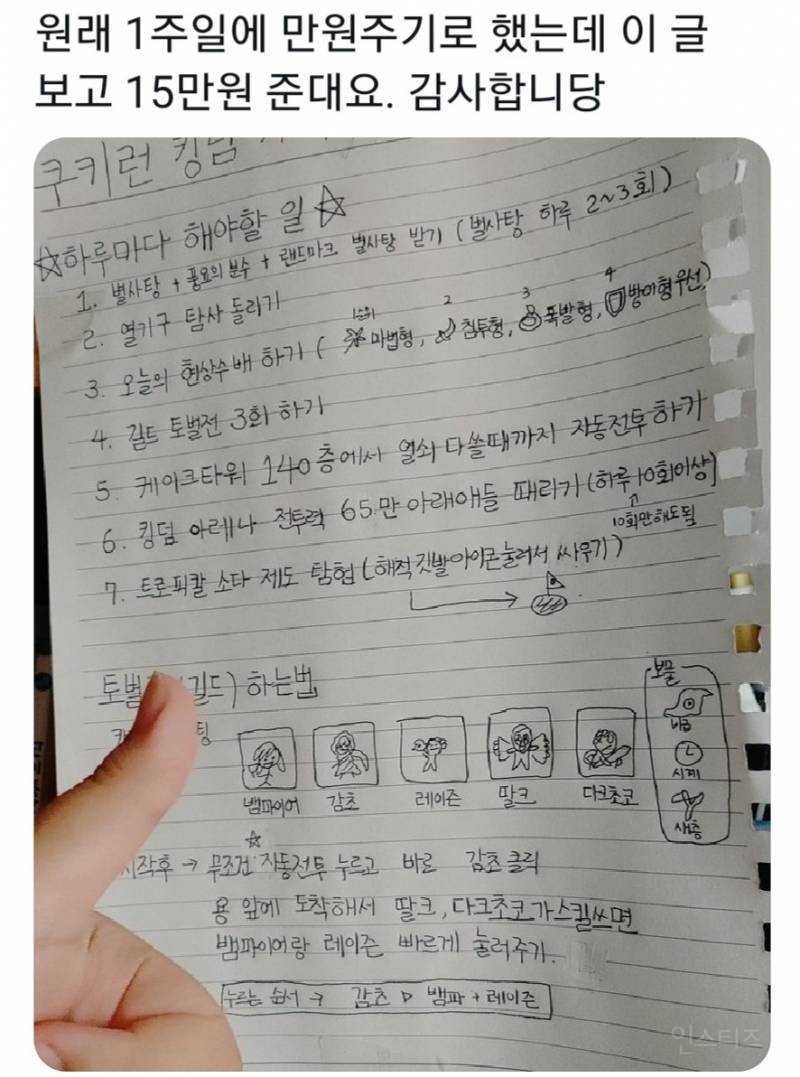 원래 1주일에 만원주기로 했는데 이 글
보고 15만원 준대요. 감사합니당
쿠키런 킹덤
☆하루마다 해야할 일☆
1. 별사탕 + 풍요의 분수 + 랜드마크 별사탕 받기 (별사탕 하루 2~3회)
2. 열기구 탐사 돌리기
1순위 2 3 4
3. 오늘의 현상수배 하기 ( 마법형, 침투형, 폭발형, 방어형우선)
4. 길드 토벌전 3회 하기
5. 케이크타워 140층에서 열쇠 다쓸때까지 자동전투하기
6. 킹덤 아레나 전투력 65만 아래애들 때리기 (하루 10회이상)
↑
10회만해도됨
7. 트로피칼 소다 제도 탐험 (해적깃발아이콘눌러서 싸우기)
토벌 (길드) 하는법
팅
보물
뱀파이어 감초 레이즌 딸크 다크초코
시계
☆
시작후 → 무조건 자동전투 누르고 바로 감초 클릭
용 앞에 도착해서 딸크, 다크초코가스킬쓰면
뱀파이어랑 레이즌 빠르게 눌러주기.
누르는 순서 → 감초 ▷ 뱀파 + 레이즌
인스티즈